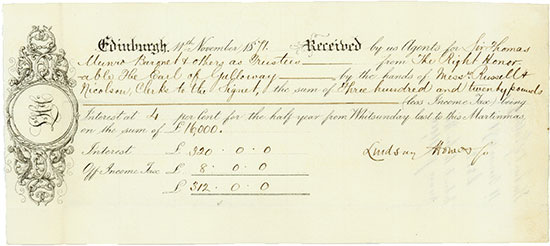 Edinburgh, 11th November 1871. Received by us Agents for Sir Thomas
Munro Baronet & others as Trustees from The Right Honor
able The Earl of Galloway by the hands of Messrs Russell &
Nicolson, Clerks to the Signet, the sum of Three hundred and twenty pounds
(less Income Tax) being
Interest at 4 per Cent for the half year from Whitsunday last to this Martinmas
on the sum of £16000.
Interest £ 320 . 0 . 0
Off Income Tax £ 8 . 0 . 0
£ 312 . 0 . 0
Lindsay